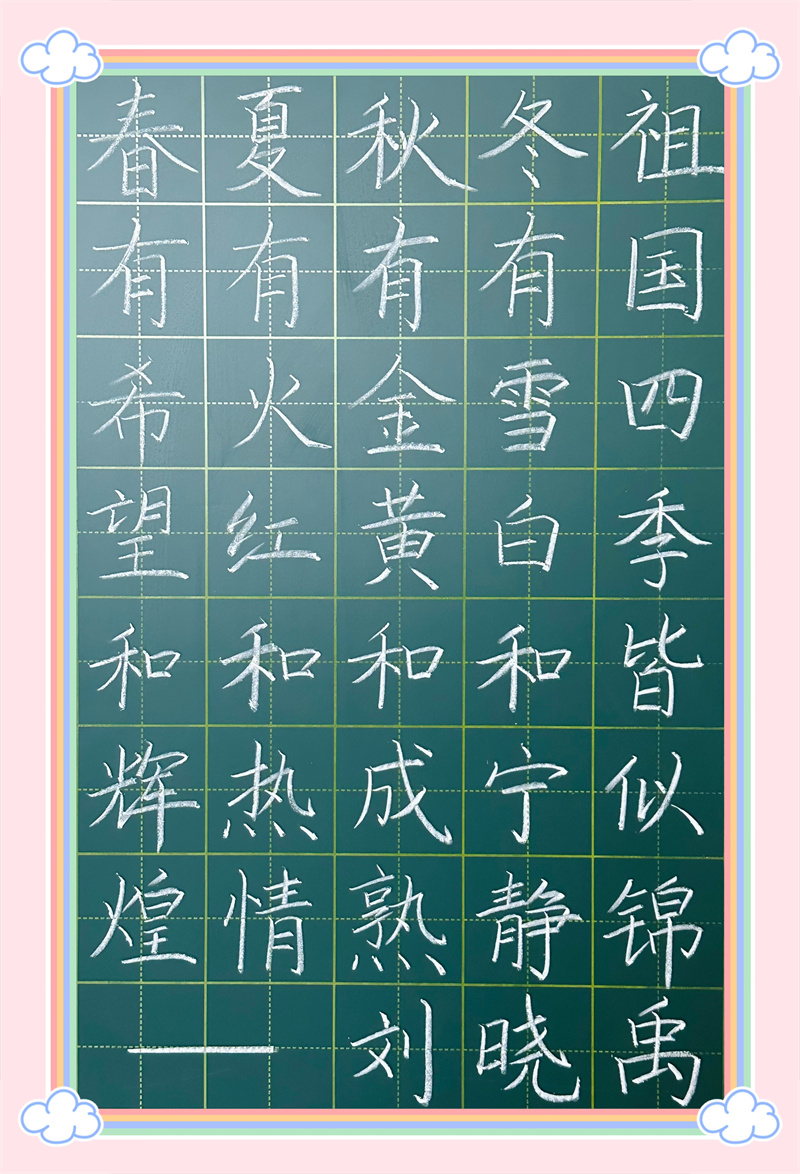 春有希望和辉煌
夏有火红和热情
秋有金黄和成熟
冬有雪白和宁静
祖国四季皆似锦
——刘晓禹